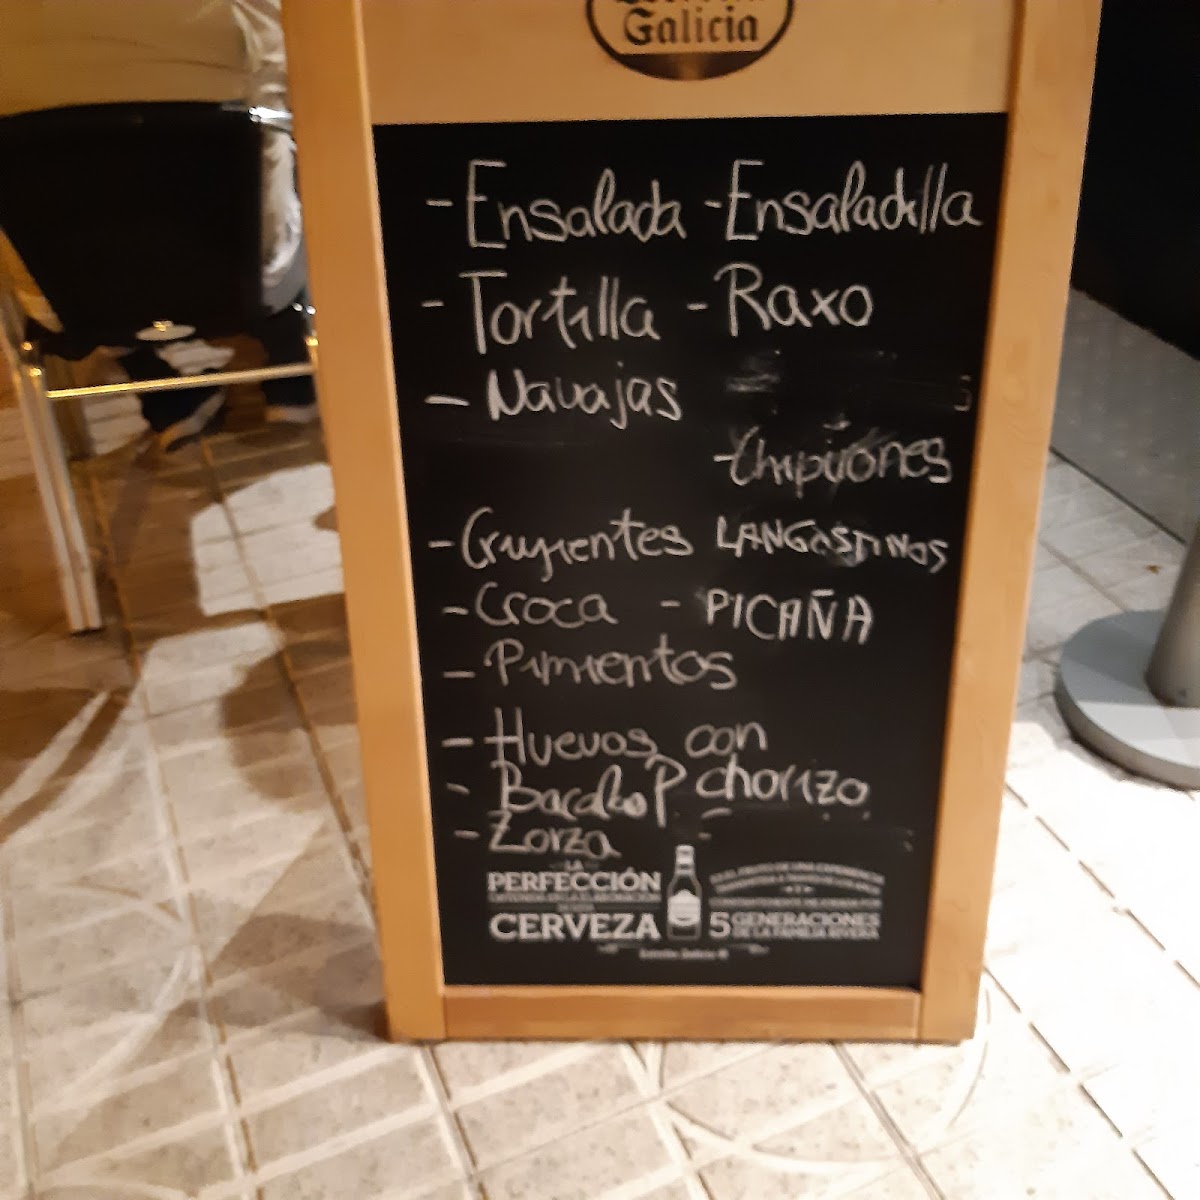 Galicia
- Ensalada - Ensaladilla
- Tortilla - Raxo
- Navajas
- Chipirones
- Crujientes LANGOSTINOS
- Croca - PICAÑA
- Pimientos
- Huevos con
chorizo
- Zorza
LA
PERFECCIÓN
CERVEZA
5 GENERACIONES
DE LA FAMILIA RIVERA